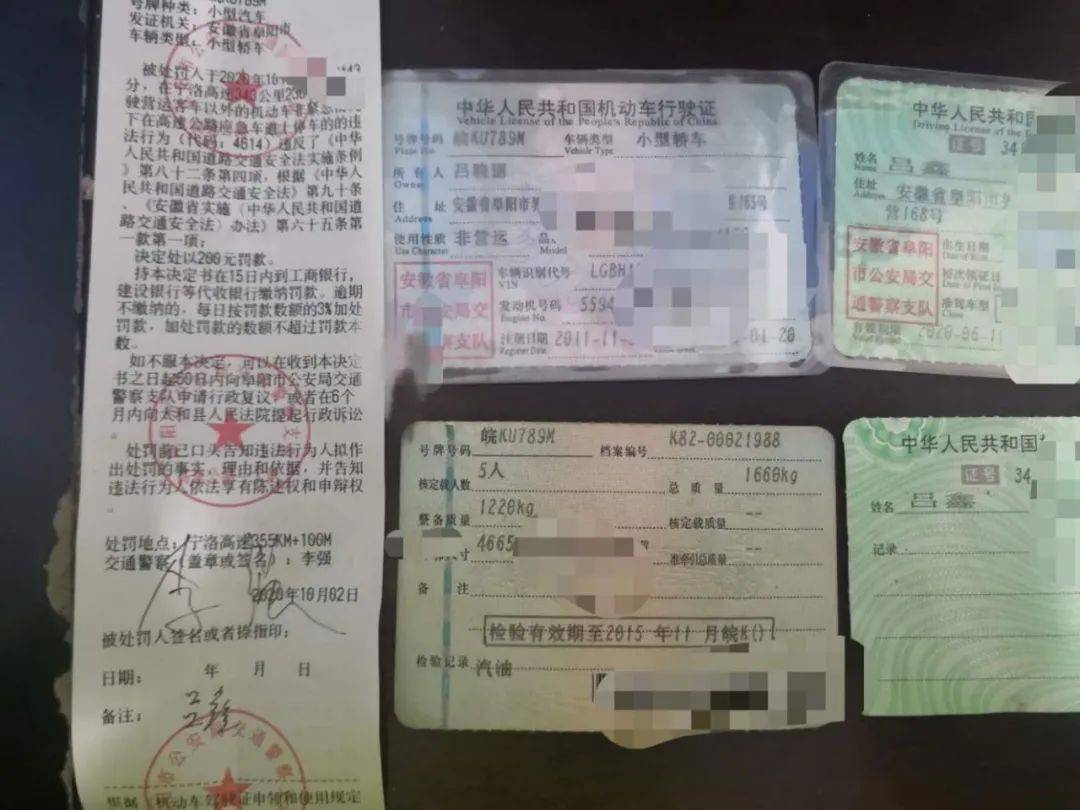 号牌种类：小型汽车
发证机关：安徽省阜阳市
车辆类型：小型轿车
被处罚人于2020年10
分，在宁洛高速343公里
驶营运客车以外的机动车非紧急
下在高速公路应急车道上停车的的违
法行为（代码：4614）违反了《中华
人民共和国道路交通安全法实施条例
》第八十二条第四项，根据《中华人
民共和国道路交通安全法》第九十条
、《安徽省实施〈中华人民共和国道
路交通安全法〉办法》第六十五条第
一款第一项：
决定处以200元罚款。
持本决定书在15日内到工商银行，
建设银行等代收银行缴纳罚款。逾期
不缴纳的，每日按罚款数额的3%加处
罚款，加处罚款的数额不超过罚款本
数。
如不服本决定，可以在收到本决定
书之日起60日内向阜阳市公安局交通
警察支队申请行政复议，或者在6个
月内向太和县人民法院提起行政诉讼
处罚前已口头告知违法行为人拟作
出处罚的事实、理由和依据，并告知
违法行为人依法享有陈述权和申辩权
处罚地点：宁洛高速355KM+100M
交通警察（盖章或签名）：李强
2020年10月02日
被处罚人签名或者捺指印：
日期： 年 月 日
备注：
吕鑫
根据《机动车驾驶证申领和使用规定
中华人民共和国机动车行驶证
Vehicle License of the People's Republic of China
号牌号码 皖KU789M 车辆类型 小型轿车
Plate No. Vehicle Type
所有人
Owner
住址 安徽省阜阳市 165号
Address
使用性质 非营运
Use Character Model
安徽省阜阳
市公安局交
通警察支队
车辆识别代号 LGBH1
VIN
发动机号码 5594
Engine No.
注册日期 2011-11- 01-20
Register Date
中华人民共和国
Driving License of the
证号 34
姓名 吕鑫
Name
住址 安徽省阜阳市
Address 营168号
安徽省阜阳
市公安局交
通警察支队
出生日期
初次领证日
准驾车型
Class
有效期限 2020-06-11
号牌号码 皖KU789M 档案编号 K82-00021988
核定载人数 5人 总质量 1660kg
整备质量 1220kg 核定载质量 --
尺寸 4665 准牵引总质量 --
备注
检验有效期至2015年11月皖K()
检验记录 汽油
中华人民共和国
证号 34
姓名 吕鑫
记录